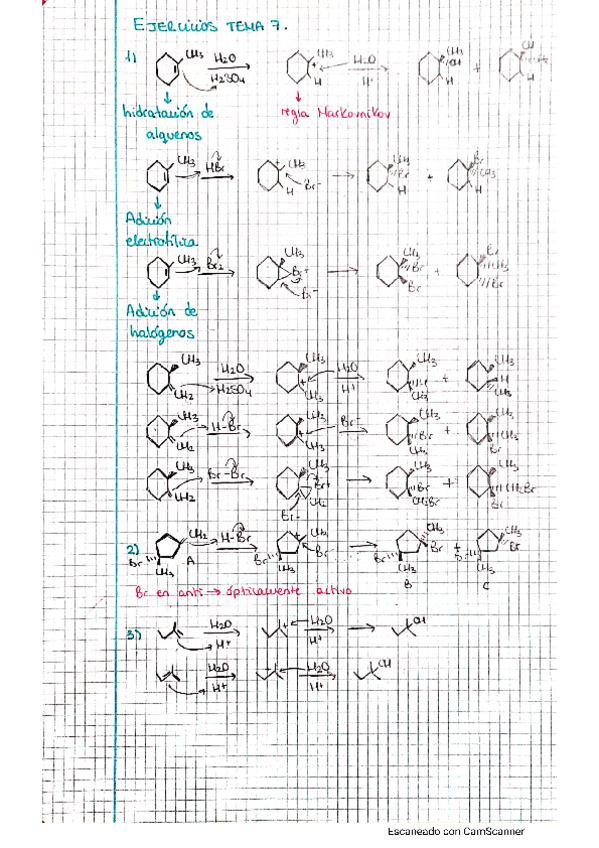 EJERCICIOS TEMA 7.
1) CH3 H2O H2SO4 CH3 + H H2O H+ CH3 OH H +
hidratación de alquenos
regla Markovnikov
CH3 HBr + CH3 H Br- CH3 Br H + Br CH3 H
Adición electrofílica
CH3 Br2 CH3 Br+ Br- CH3 Br Br + Br CH3 Br
Adición de halógenos
CH3 CH2 H2O H2SO4 CH3 + H2O H+ CH3 CH3 + CH3 CH3
CH3 CH2 H-Br CH3 + CH3 Br- CH3 Br CH3 + CH3 CH3 Br
CH3 CH2 Br-Br CH3 Br+ CH2 Br- CH3 Br CH2Br + CH3 CH2Br Br
2) CH2 Br CH3 A H-Br + CH3 Br CH3 Br- CH3 Br Br CH3 B + CH3 Br Br CH3 C
Br en anti → ópticamente activo
3) H2O H+ + H2O H+ OH
H2O H+ + H2O H+ OH
Escaneado con CamScanner